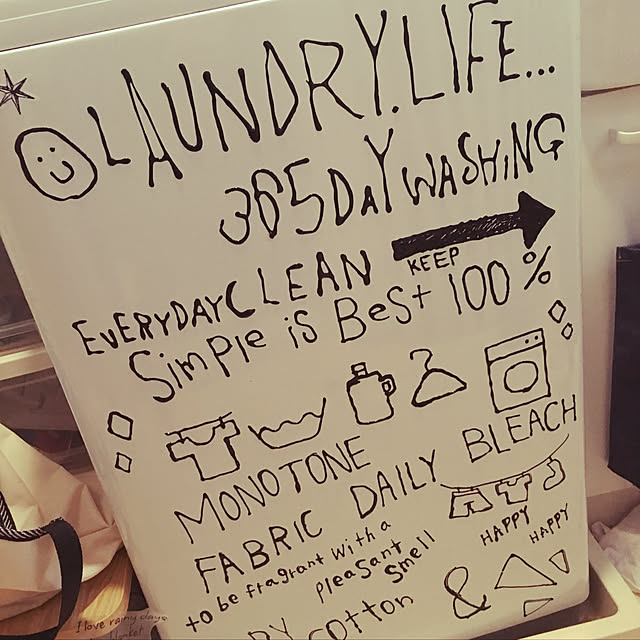 LAUNDRY.LIFE...
365DAYWASHiNG
EVERYDAYCLEAN
KEEP
SimPle iS BeSt 100%
MONOTONE
FABRIC DAILY BLEACH
to be fragrant with a
Pleasant smell
HAPPY
HAPPY
DRY cotton
&
I love rainy days
blanket